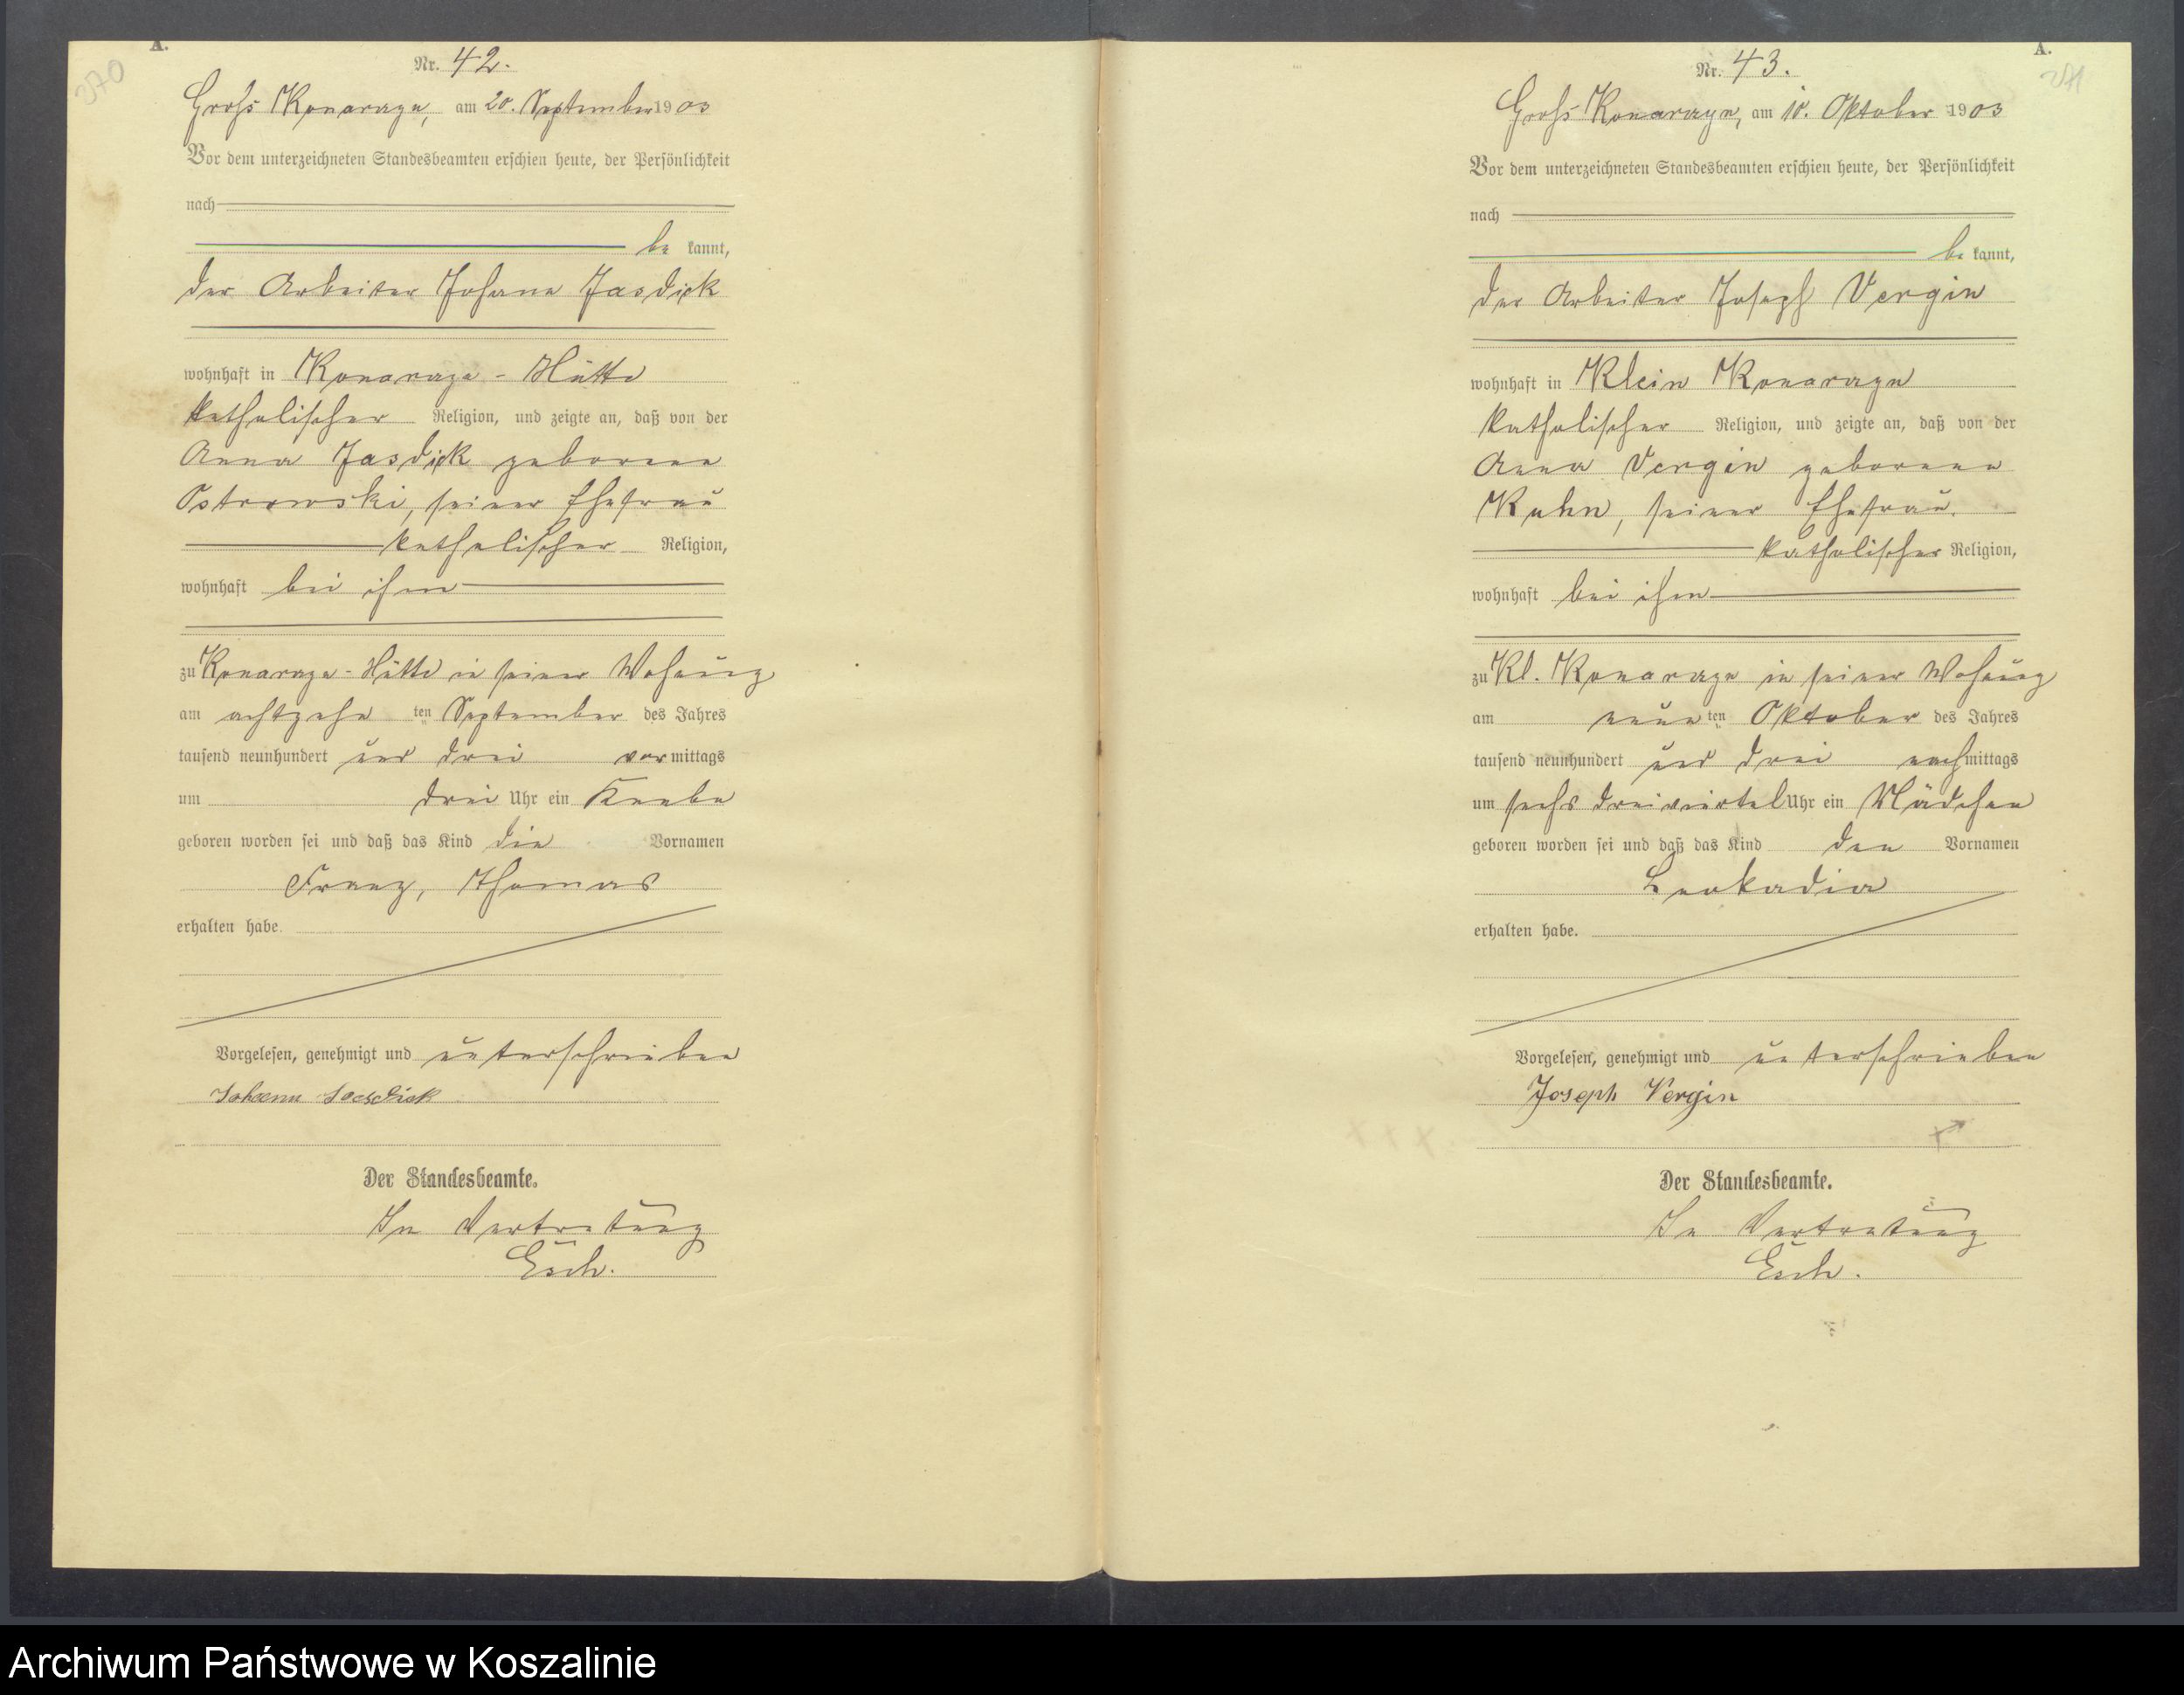 A.
370
Nr. 42.
Groß Konarczyn, am 20. September 1903
Vor dem unterzeichneten Standesbeamten erschien heute, der Persönlichkeit
nach
be kannt,
der Arbeiter Johann Jasdick
wohnhaft in Konarczyn - Hütte
katholischer Religion, und zeigte an, daß von der
Anna Jasdick geborene
Ostrowski, seiner Ehefrau
katholischer Religion,
wohnhaft bei ihm
zu Konarczyn - Hütte in seiner Wohnung
am achtzehn ten September des Jahres
tausend neunhundert und drei vormittags
um drei Uhr ein Knabe
geboren worden sei und daß das Kind die Vornamen
Franz, Thomas
erhalten habe.
Vorgelesen, genehmigt und unterschrieben
Johann Jasdick
Der Standesbeamte.
In Vertretung
Esch.
A.
371
Nr. 43.
Groß Konarczyn, am 10. Oktober 1903
Vor dem unterzeichneten Standesbeamten erschien heute, der Persönlichkeit
nach
be kannt,
der Arbeiter Joseph Vergin
wohnhaft in Klein Konarczyn
katholischer Religion, und zeigte an, daß von der
Anna Vergin geborenen
Kuhn, seiner Ehefrau.
katholischer Religion,
wohnhaft bei ihm
zu Kl. Konarczyn in seiner Wohnung
am neun ten Oktober des Jahres
tausend neunhundert und drei nachmittags
um sechs dreiviertel Uhr ein Mädchen
geboren worden sei und daß das Kind den Vornamen
Leokadia
erhalten habe.
Vorgelesen, genehmigt und unterschrieben
Joseph Vergin
Der Standesbeamte.
In Vertretung
Esch.
Archiwum Państwowe w Koszalinie